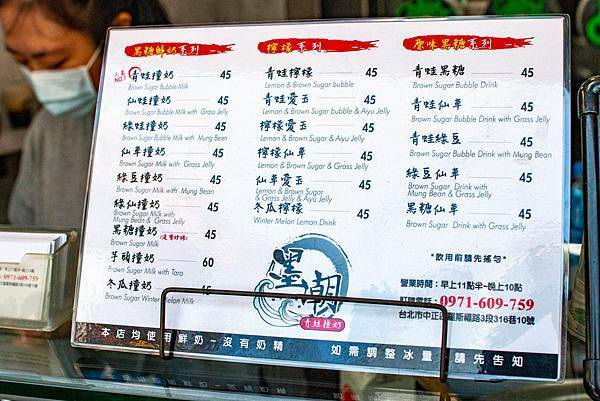 黑糖鮮奶系列
人氣
NO.1
青蛙撞奶 45
Brown Sugar Bubble Milk
仙蛙撞奶 45
Brown Sugar Bubble Milk with Grass Jelly
綠蛙撞奶 45
Brown Sugar Bubble Milk with Mung Bean
仙草撞奶 45
Brown Sugar Milk with Grass Jelly
綠豆撞奶 45
Brown Sugar Milk with Mung Bean
綠仙撞奶 45
Brown Sugar Milk with
Mung Bean & Grass Jelly
黑糖撞奶(沒有珍珠) 45
Brown Sugar Milk
芋頭撞奶 60
Brown Sugar Milk with Taro
冬瓜撞奶 45
Brown Sugar Winter Melon Milk
檸檬系列
青蛙檸檬 45
Lemon & Brown Sugar bubble
青蛙愛玉 45
Lemon & Brown Sugar bubble & Aiyu Jelly
檸檬愛玉 45
Lemon & Brown Sugar & Aiyu Jelly
檸檬仙草 45
Lemon & Brown Sugar & Grass Jelly
仙草愛玉 45
Lemon & Brown Sugar
& Grass Jelly & Aiyu Jelly
冬瓜檸檬 45
Winter Melon Lemon Drink
墨潮
青蛙撞奶
原味黑糖系列
青蛙黑糖 45
Brown Sugar Bubble Drink
青蛙仙草 45
Brown Sugar Bubble Drink with Grass Jelly
青蛙綠豆 45
Brown Sugar Bubble Drink with Mung Bean
綠豆仙草 45
Brown Sugar Drink with
Mung Bean & Grass Jelly
黑糖仙草 45
Brown Sugar Drink with Grass Jelly
*飲用前請先搖勻*
營業時間:早上11點半~晚上10點
訂購電話:0971-609-759
台北市中正區羅斯福路3段316巷10號
本店均使用鮮奶~沒有奶精 如需調整冰量 請先告知
0971-609-759